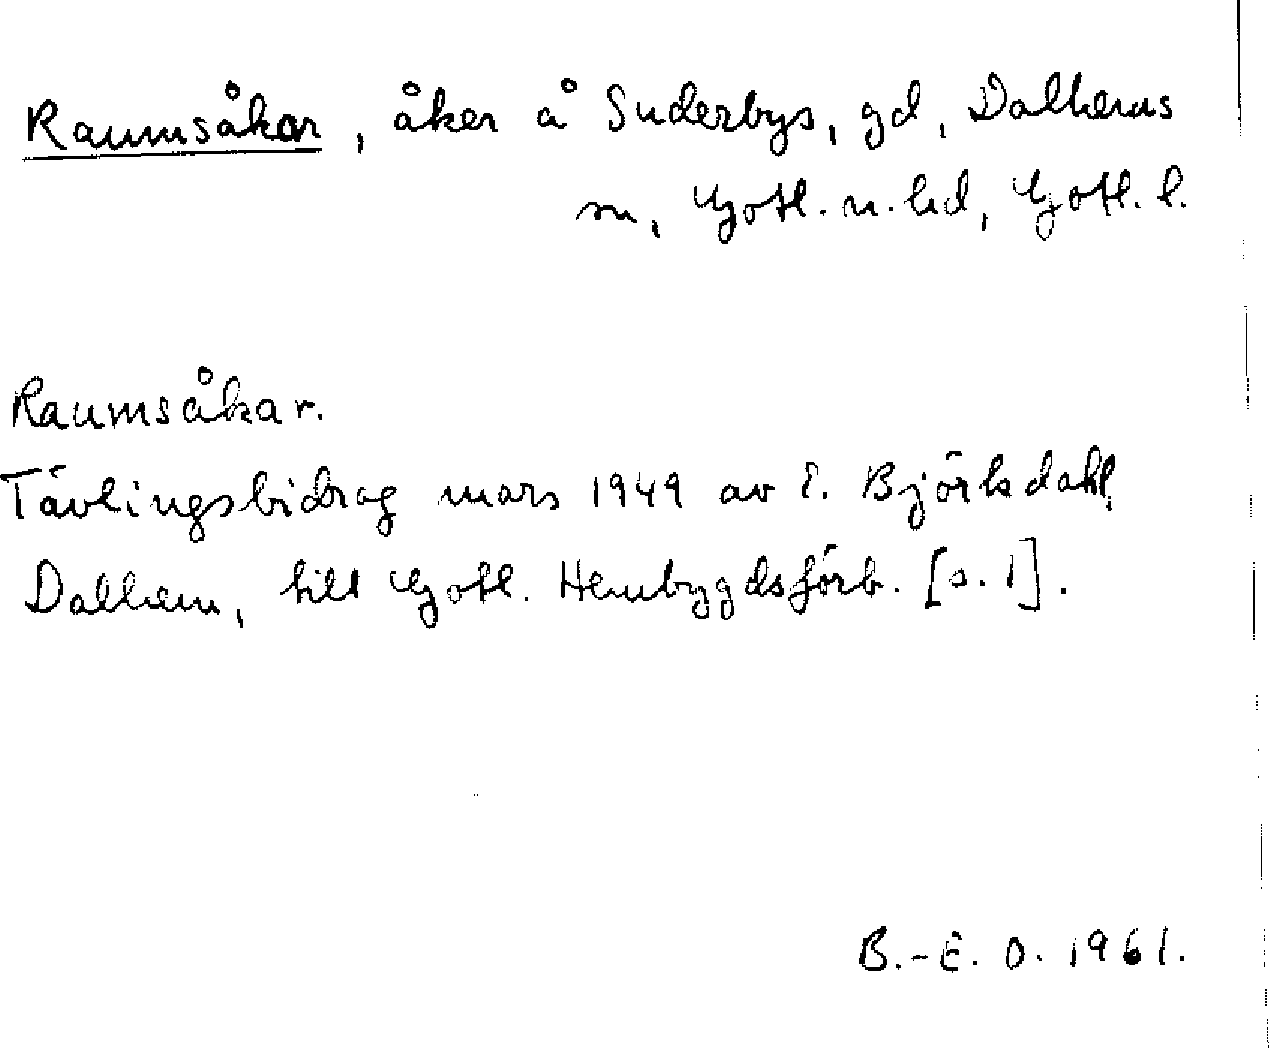 Raumsåkar, åker å Suderbys, gd, Dalhems
sn, Gotl. n. hd, Gotl. l.
Raumsåkar.
Tävlingsbidrag mars 1949 av E. Björksdahl,
Dalhem, till Gotl. Hembygdsförb. [s. 1].
B.-E. O. 1961.